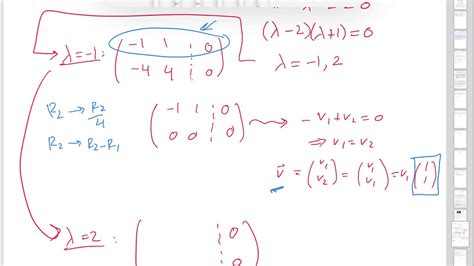 (λ-2)(λ+1)=0
λ=-1: ( -1 1 | 0 )
( -4 4 | 0 )
λ = -1, 2
R2 → R2/4
R2 → R2-R1
( -1 1 | 0 )
( 0 0 | 0 )
-v1+v2 = 0
⇒ v1 = v2
v⃗ = (v1 v2) = (v1 v1) = v1 (1 1)
λ=2: ( | 0 )
( | 0 )